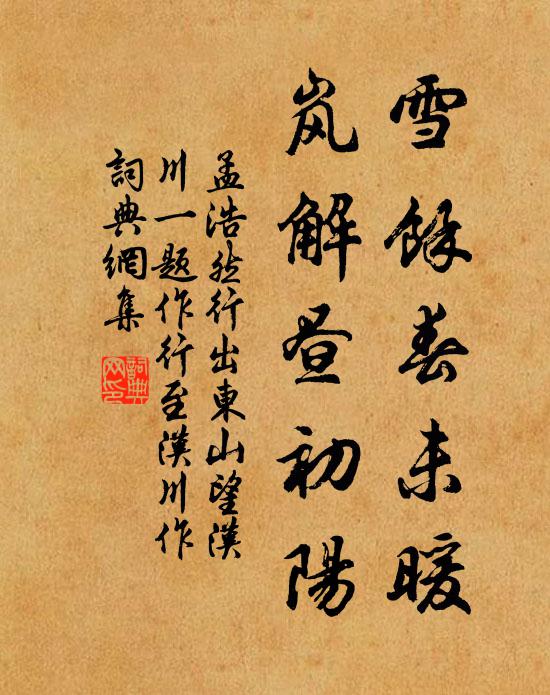 雪餘春未暖
岚解昼初陽
孟浩然行出東山望漢
川一题作行至漢川作
詞典網集
詞典
网印